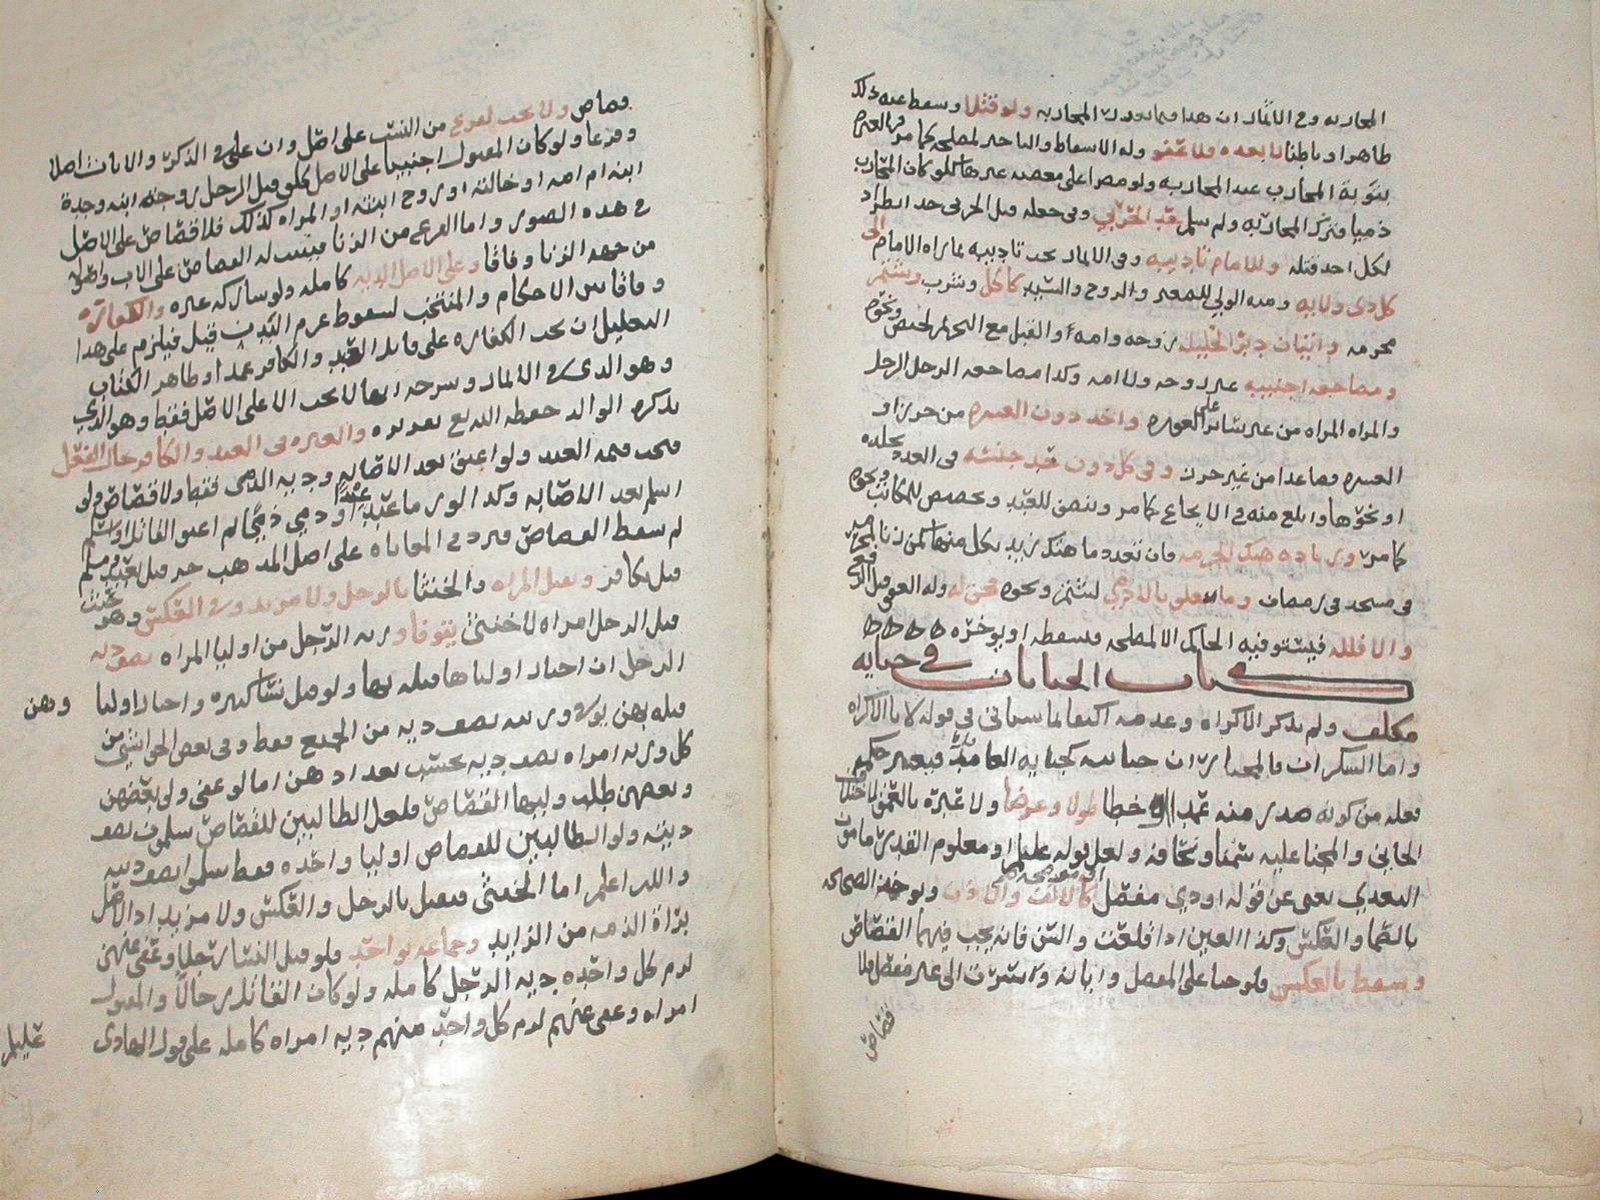 المحاربه وفي الاثمار ان هذا فيما تعدد في المحاربه ولو قتلا وسقط عنه ذلك
طاهرا وباطنا لا بعده ولا عفو وله الاسقاط والتاخير لمصلحه كما مر في
بتوبة المحارب عند المحاربه ولو مصرا على معصيه غيرها فلو كان المحارب
ذميا فترك المحاربه ولم يسلم
لكل احد قتله وللامام تاديبه وفي الاثمار يجب تاديبه بما يراه الامام الى
كل ذي ولايه ومنه الولي للصغير والزوج والسيد كاكل وشرب وشتم
محرمه واتيان دبر الحليله زوجه وامه او القبل مع التحريم لحيض ونحوه
ومضاجعة اجنبيه غير زوجه ولا امه وكذا مضاجعه الرجل الرجل
والمراه المراه من غير ساتر على العوره واخذ دون العشره من حرز او
العشره فصاعدا من غير حرز وفي كل دون حد جنسه في العدد بجلده
او نحوها وابلغ منه في الايجاع كما مر وينصف للعبد ويحصص للمكاتب ونحوه
كما مر وزياده هتك الحرمه فان تعدد ما هتك زيد بكل منها كمن زنا
في مسجد في رمضان وما تعلق بالادمي لشتم ونحوه فحق له وله العفو قبل الرفع
والا فلله فيستوفيه الحاكم الا لمصلحه فيسقطه او يوخره
كتاب الجنايات في جنايه
مكلف ولم يذكر الاكراه وعدمه اكتفا بما سياتي في قوله لا بالاكراه
واما السكران فالمختار ان جنايته كجنايه العامد فيعتبر حكم
فعله من كونه صدر منه عمدا او خطا طولا وعرضا ولا عبره بالعمق
الجاني والمجنا عليه سمنا ونحافه ولعل قوله عليلم او معلوم القدر مامون
التعدي يغني عن قوله او ذي مفصل كالانف والاذن ويوخذ الصحاح
بالصما والعكس وكذا العين اذا قلعت والسن فانه يجب فيهما القصاص
ويسقط بالعكس فلو جنا على المفصل وابانه وسرت الى غير مفصل فلا
قصاص
قصاص ولا يجب لفرع من النسب على اصل وان علا في الذكور والاناث اصلا
وفرعا ولو كان المقتول اجنبيا على الاصل كلو قتل الرجل زوجة ابنه وجدة
ابنه ام امه او خالته او زوج ابنته او المراه كذلك فلا قصاص على الاصل
في هذه الصور واما الفرع من الزنا فيثبت له القصاص على الاب واصوله
من جهه الزنا وفاقا وعلى الاصل الديه كامله ولو شاركه غيره والكفاره
وفاقا بين الاحكام والمنتخب لسقوط عزم القود قيل فيلزم على هذا
التعليل ان تجب الكفاره على قاتل العبد والكافر عمدا وظاهر الكتاب
وهو الذي في الاثمار وشرحه انها لا تجب الا على الاصل فقط وهو الذي
يذكره الوالد حفظه الله والعبره في العبد والكافر حال الفعل
فتجب قيمه العبد ولو اعتق بعد الاصابه وديه الذمي فقط ولا قصاص ولو
اسلم بعد الاصابه وكذا لو رما عبد عبدا او ذمي ذميا ثم اعتق القاتل او اسلم
لم يسقط القصاص على اصل المذهب حر قتل بعبد ومسلم
قتل بكافر ويقتل المراه والخنثا بالرجل ولا مزيد وفي العكس وهو حيث
قتل الرجل امراه لا خنثى يتوفا ورثه الرجل من اوليا المراه نصف ديه
الرجل ان اختار اولياها قتله بها ولو قتل نسا كثيره واختار اوليا وهن
قتله بهن يوفي ورثته نصف ديه من الجميع فقط وفي بعض الحواشي من
كل ورثه امراه نصف ديه بحسب تعدادهن اما لو عفى ولي بعضهن
وبعضهن طلب وليها القصاص فلعل الطالبين للقصاص يسلمون نصف
ديته ولو الطالبين للقصاص اوليا واحده فقط سلموا نصف ديته
والله اعلم اما الخنثى فيقتل بالرجل والعكس ولا مزيد اذ الاصل
براة الذمه من الزايد وجماعه بواحد فلو قتل النسا رجلا وعفي عنهن
لزم كل واحده ديه الرجل كامله ولو كان القاتل رجالا والمقتول
امراه وعفي عنهم لزم كل واحد منهم ديه امراه كامله على قول الهادي عليلم